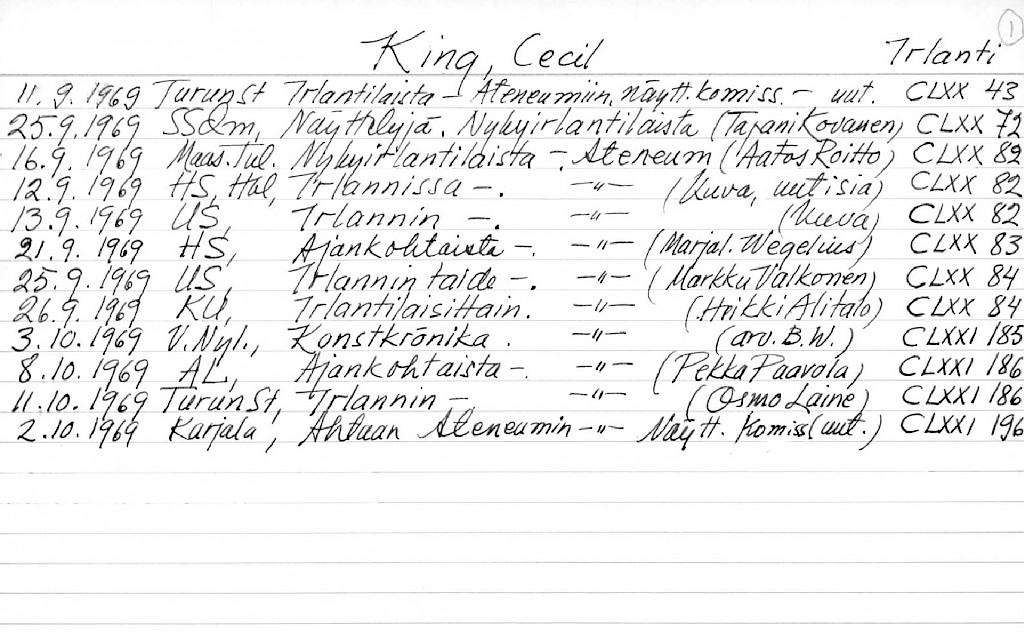 1
King, Cecil Irlanti
11.9.1969 TurunSt Irlantilaista - Ateneumiin, näytt.komiss. - uut. CLXX 43
25.9.1969 SSd m, Näyttelyjä. Nykyirlantilaista (Tapani Kovanen) CLXX 72
16.9.1969 Maas.Tul. Nykyirlantilaista -. Ateneum (Aatos Roitto) CLXX 82
12.9.1969 HS, Hbl, Irlannissa -. -"- (kuva, uutisia) CLXX 82
13.9.1969 US, Irlannin -. -"- (kuva) CLXX 82
21.9.1969 HS, Ajankohtaista -. -"- (Marjal. Wegelius) CLXX 83
25.9.1969 US, Irlannin taide -. -"- (Markku Valkonen) CLXX 84
26.9.1969 KU, Irlantilaisittain. -"- (Heikki Alitalo) CLXX 84
3.10.1969 V.Nyl., Konstkrönika. -"- (arv. B.W.) CLXXI 185
8.10.1969 AL, Ajankohtaista -. -"- (Pekka Paavola) CLXXI 186
11.10.1969 TurunSt, Irlannin - -"- (Osmo Laine) CLXXI 186
2.10.1969 Karjala, Ahtaan Ateneumin -"- Näytt. komiss(uut.) CLXXI 196